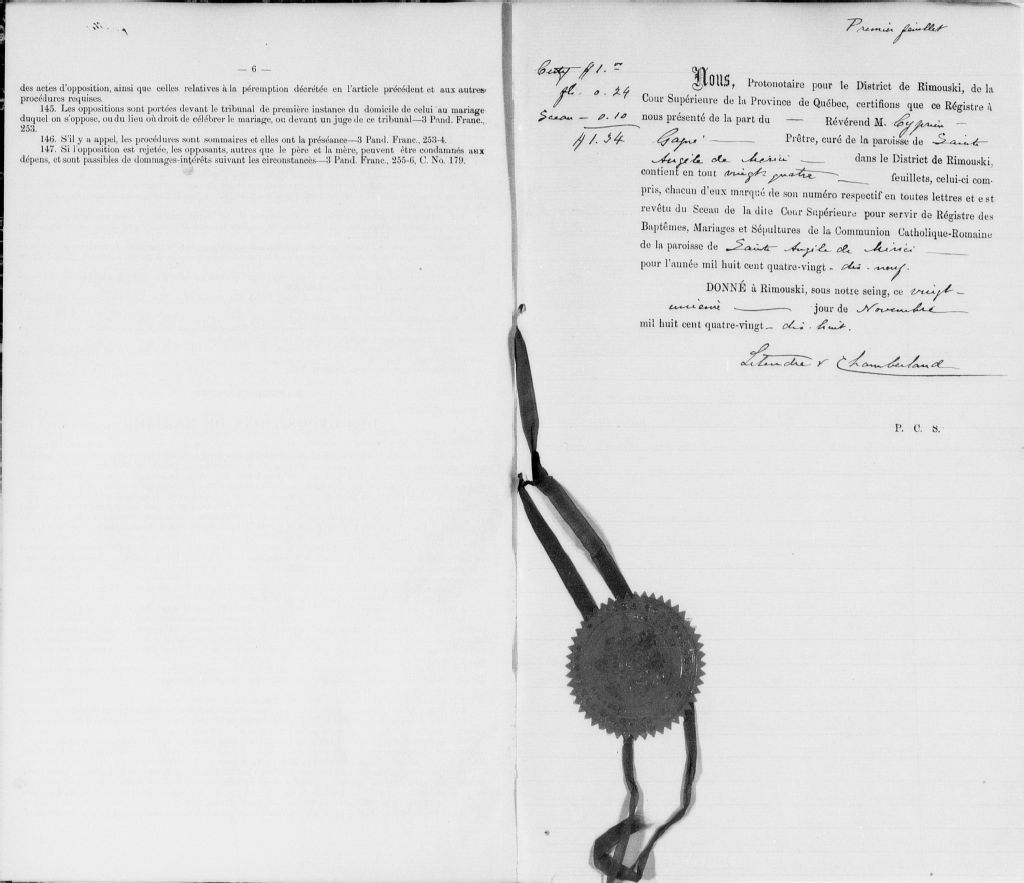 — 6 —
des actes d'opposition, ainsi que celles relatives à la péremption décrétée en l'article précédent et aux autres
procédures requises.
145. Les oppositions sont portées devant le tribunal de première instance du domicile de celui au mariage
duquel on s'oppose, ou du lieu où droit de célébrer le mariage, ou devant un juge de ce tribunal—3 Pand. Franc.,
253.
146. S'il y a appel, les procédures sont sommaires et elles ont la préséance—3 Pand. Franc., 253-4.
147. Si l'opposition est rejetée, les opposants, autres que le père et la mère, peuvent être condamnés aux
dépens, et sont passibles de dommages-intérêts suivant les circonstances—3 Pand. Franc., 255-6, C. No. 179.
Premier feuillet
$1.
0.24
Sceau — 0.10
$1.34
Nous, Protonotaire pour le District de Rimouski, de la
Cour Supérieure de la Province de Québec, certifions que ce Régistre à
nous présenté de la part du — Révérend M. Cyprien —
Gagné — Prêtre, curé de la paroisse de Sainte
Angèle de Mérici — dans le District de Rimouski,
contient en tout vingt quatre — feuillets, celui-ci com-
pris, chacun d'eux marqué de son numéro respectif en toutes lettres et est
revêtu du Sceau de la dite Cour Supérieure pour servir de Régistre des
Baptêmes, Mariages et Sépultures de la Communion Catholique-Romaine
de la paroisse de Sainte Angèle de Mérici —
pour l'année mil huit cent quatre-vingt - dix - neuf.
DONNÉ à Rimouski, sous notre seing, ce vingt -
unième — jour de Novembre —
mil huit cent quatre-vingt - dix - huit.
Letendre & Chamberland
P. C. S.